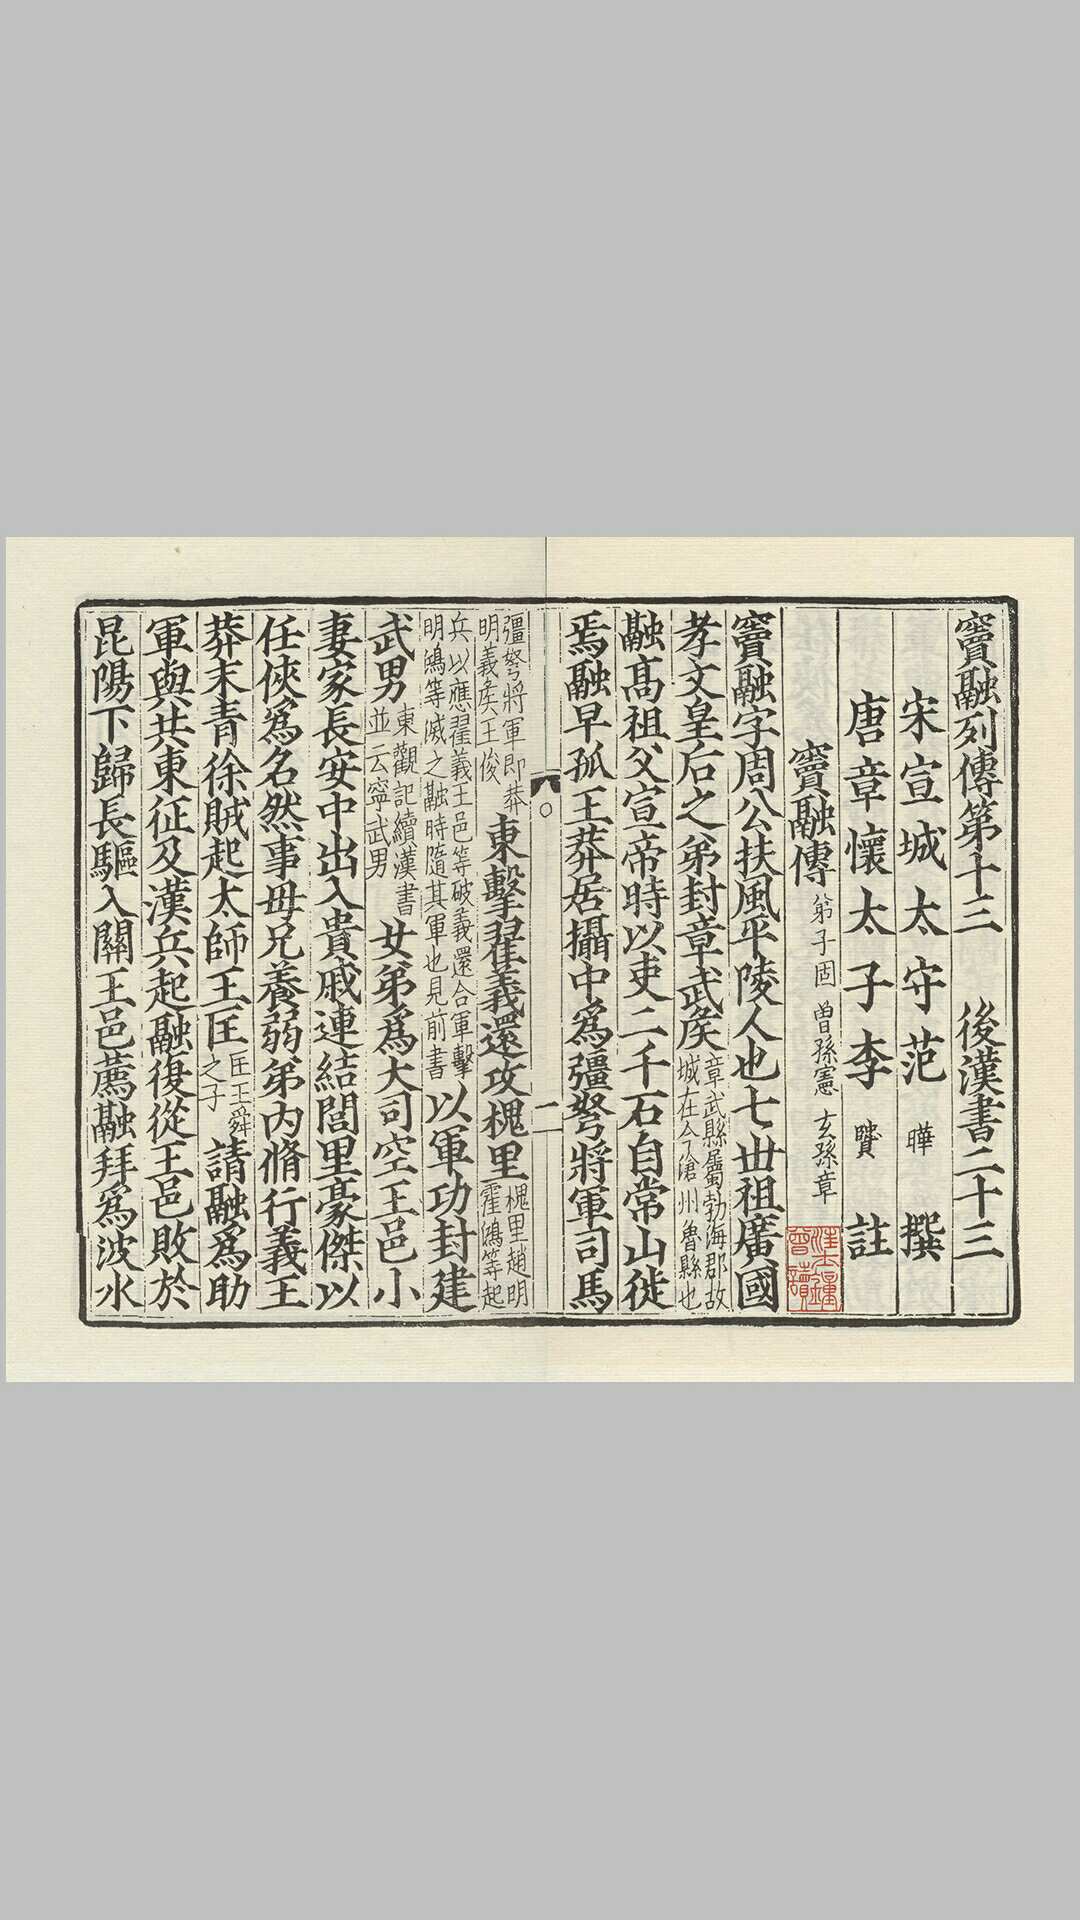 竇融列傳第十三 後漢書二十三
宋宣城太守范 曄 撰
唐章懷太子李 賢 註
竇融傳 弟子固 曾孫憲 玄孫章
竇融字周公扶風平陵人也七世祖廣國
孝文皇后之弟封章武侯
章武縣屬勃海郡故
城在今滄州魯縣也
融高祖父宣帝時以吏二千石自常山徙
焉融早孤王莽居攝中爲彊弩將軍司馬
二
彊弩將軍即莽
明義侯王俊
東擊翟義還攻槐里
槐里趙明
霍鴻等起
兵以應翟義王邑等破義還合軍擊
明鴻等滅之融時隨其軍也見前書
以軍功封建
武男
東觀記續漢書
並云寧武男
女弟爲大司空王邑小
妻家長安中出入貴戚連結閭里豪傑以
任俠爲名然事母兄養弱弟內脩行義王
莽末青徐賊起太師王匡
匡王舜
之子
請融爲助
軍與共東征及漢兵起融復從王邑敗於
昆陽下歸長驅入關王邑薦融拜爲波水